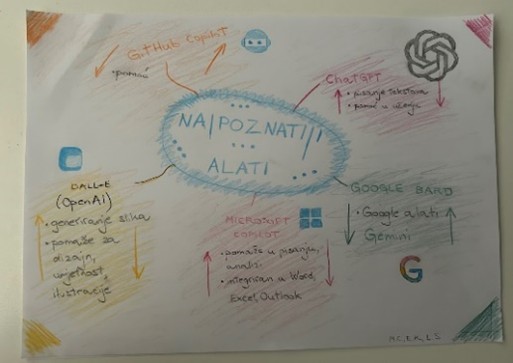 GitHub Copilot
•pomoć
ChatGPT
• pisanje tekstova
• pomoć u učenju
NAJPOZNATIJI
ALATI
DALL-E
(OpenAI)
• generiranje slika
• pomaže za
dizajn,
umjetnost,
ilustracije
MICROSOFT
COPILOT
• pomaže u pisanju,
analizi
• integriran u Word,
Excel, Outlook
GOOGLE BARD
• Google alati
Gemini